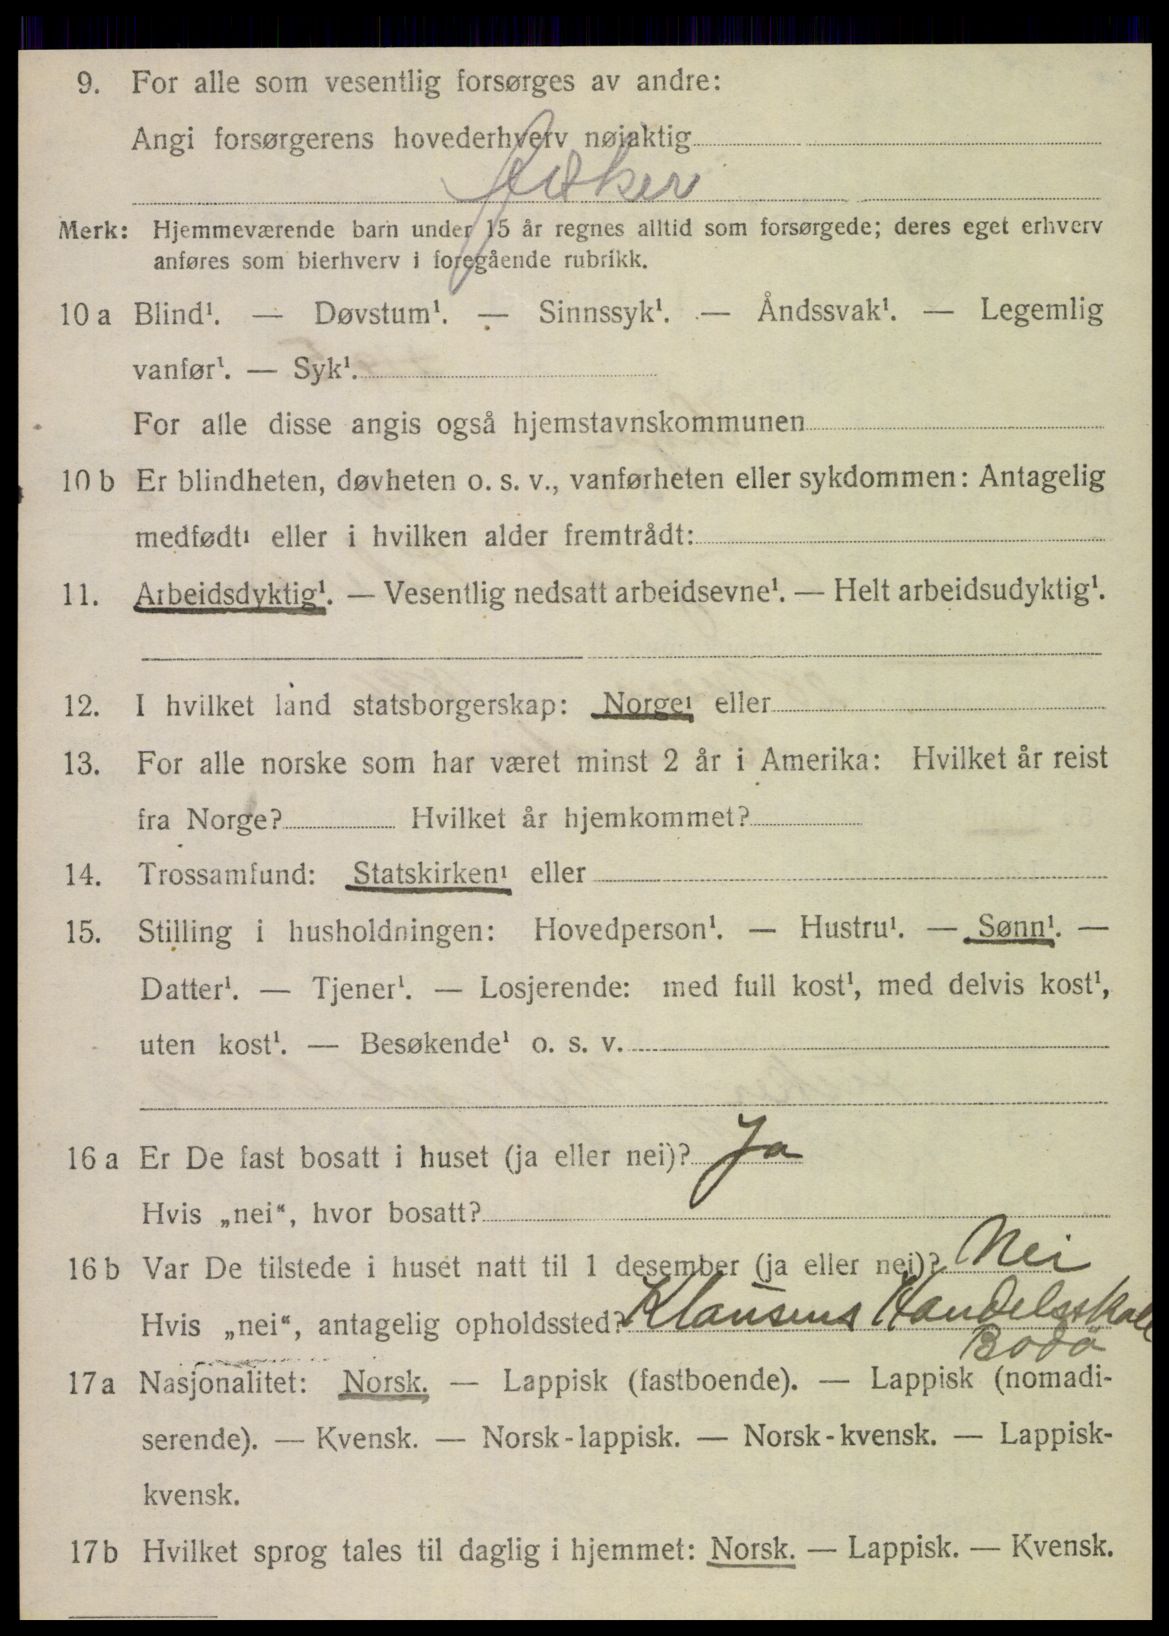 9. For alle som vesentlig forsørges av andre:
Angi forsørgerens hovederhverv nøiaktig
Fisker
Merk: Hjemmeværende barn under 15 år regnes alltid som forsørgede; deres eget erhverv
anføres som bierhverv i foregående rubrikk.
10 a Blind¹. — Døvstum¹. — Sinnssyk¹. — Åndssvak¹. — Legemlig
vanfør¹. — Syk¹.
For alle disse angis også hjemstavnskommunen
10 b Er blindheten, døvheten o. s. v., vanførheten eller sykdommen: Antagelig
medfødt¹ eller i hvilken alder fremtrådt:
11. Arbeidsdyktig¹. — Vesentlig nedsatt arbeidsevne¹. — Helt arbeidsudyktig¹.
12. I hvilket land statsborgerskap: Norge¹ eller
13. For alle norske som har været minst 2 år i Amerika: Hvilket år reist
fra Norge? Hvilket år hjemkommet?
14. Trossamfund: Statskirken¹ eller
15. Stilling i husholdningen: Hovedperson¹. — Hustru¹. — Sønn¹. —
Datter¹. — Tjener¹. — Losjerende: med full kost¹, med delvis kost¹,
uten kost¹. — Besøkende¹ o. s. v.
16 a Er De fast bosatt i huset (ja eller nei)? Ja
Hvis „nei“, hvor bosatt?
16 b Var De tilstede i huset natt til 1 desember (ja eller nei)? Nei
Hvis „nei“, antagelig opholdssted? Klausens Handelsskole
Bodø
17 a Nasjonalitet: Norsk. — Lappisk (fastboende). — Lappisk (nomadi-
serende). — Kvensk. — Norsk-lappisk. — Norsk-kvensk. — Lappisk-
kvensk.
17 b Hvilket sprog tales til daglig i hjemmet: Norsk. — Lappisk. — Kvensk.